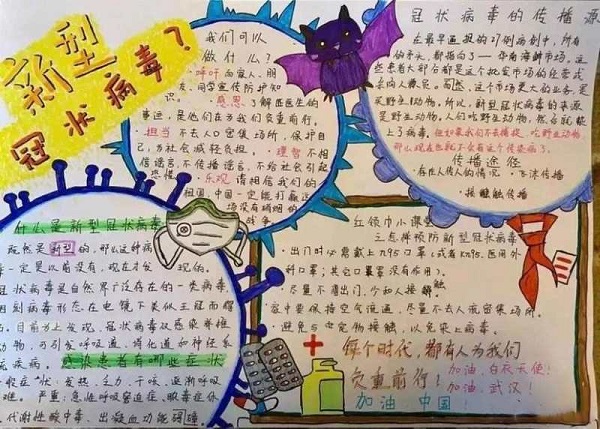 新型
冠状病毒？
我们可以
做什么？
·呼吁向家人、朋
友、同学宣传防护知
识。·感恩：了解医生的
事迹，是他们在为我们负重前行。
·担当不去人口密集场所，保护自
己，为社会减轻负担。·理智：不相
信谣言，不传播谣言，不给社会引起
恐慌。·乐观请相信我们的
祖国，中国一定能打赢这
场没有硝烟的
战争
冠状病毒的传播源
在最早通报的27例病例中，所有
的矛头，都指向了一华南海鲜市场，这
些患者大部分都是这个批发市场的经营或
来向人搬货。而然，这个市场更大的业务是
买野生动物。所以，新型冠状病毒的来源
是野生动物。人们吃野生动物，然后就染
上了病毒。但如果我们不去捕捉、吃野生动物，
那么现在也就不会有这个传染病了。
传播途径
·存在人传人的情况 ·飞沫传播
·接触传播
什么是新型冠状病毒
既然是新型的，那么这种病
毒一定是以前没有，现在才发现的。
冠状病毒是自然界广泛存在的一类病毒，
因刻病毒形态在电镜下类似王冠而得
名，目前为止发现，冠状病毒仅感染脊椎
动物，可引发呼吸道、消化道和神经系
统疾病。感染患者有哪些症状
一般症状：发热、乏力、干咳、逐渐呼吸
难。严重：急性呼吸窘迫症、脓毒症休
、代谢性酸中毒、出凝血功能障碍。
红领巾小课堂
三怎样预防新型冠状病毒
·出门时必需戴上n95口罩（或者kn95、医用外
科口罩；其它口罩是没有作用）。
·尽量不需出门，少和人接触。
·家中要保持空气流通，尽量不去人流密集场所。
避免与宠物接触，以免染上病毒。
每个时代，都有人为我们
负重前行！
加油，白衣天使！
加油，武汉！
加油，中国！